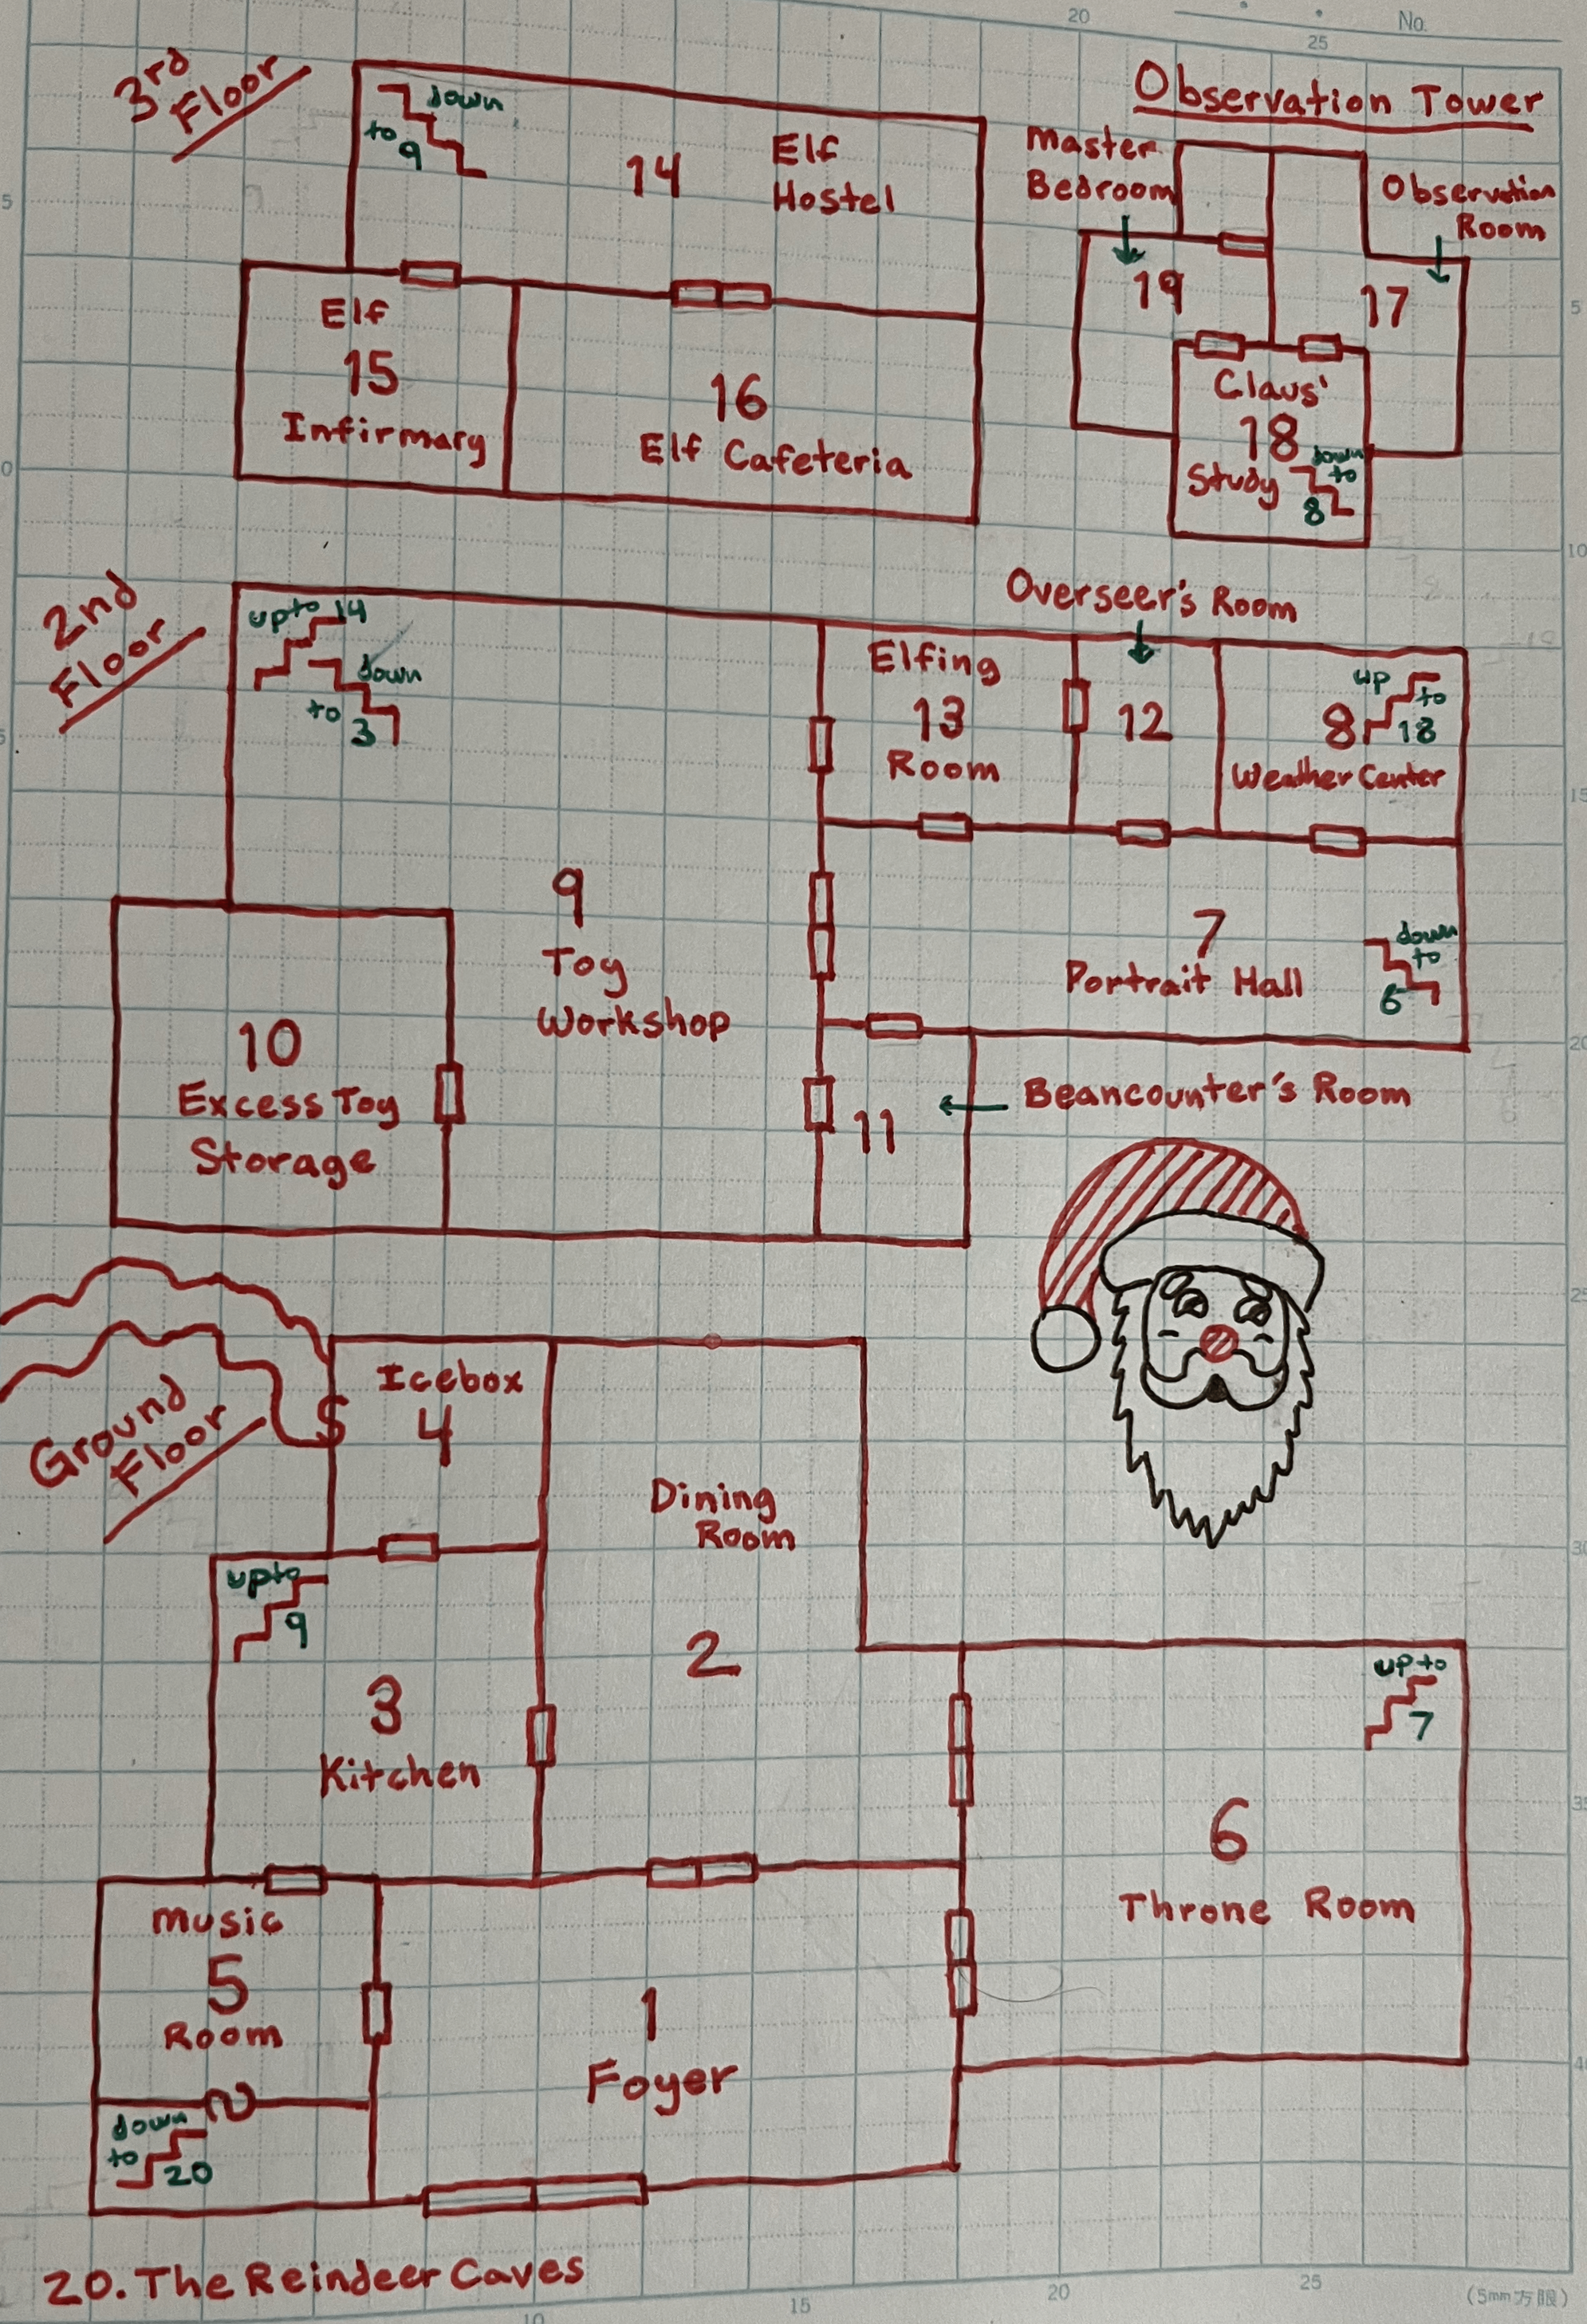 20
25
No.
3rd
Floor
down
to
9
14
Elf
Hostel
Elf
15
Infirmary
16
Elf Cafeteria
Observation Tower
Master
Bedroom
Observation
Room
19
17
Claus'
18
Study
down
to
8
5
0
5
10
2nd
Floor
up to 14
down
to
3
Overseer's Room
Elfing
13
Room
12
up
to
18
8
Weather Center
9
Toy
Workshop
7
Portrait Hall
down
to
6
10
Excess Toy
Storage
11
Beancounter's Room
5
15
20
25
Ground
Floor
Icebox
4
S
Dining
Room
2
up to
9
3
Kitchen
up to
7
6
Throne Room
Music
5
Room
down
to
20
1
Foyer
30
35
40
20. The Reindeer Caves
10
15
20
25
(5mm方眼)